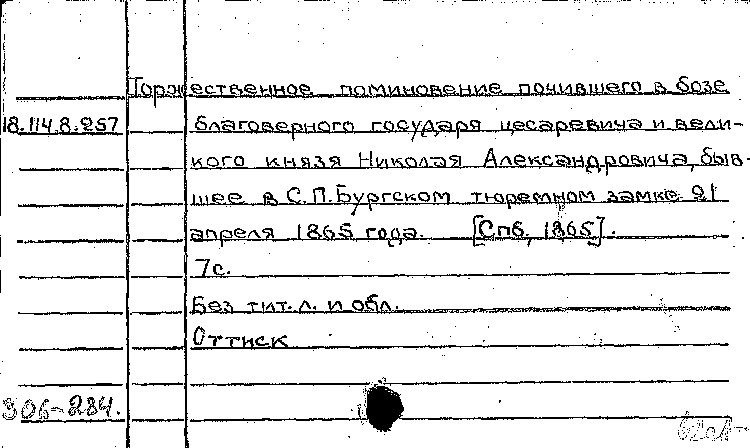 Торжественное поминовение почившего в бозе
18.114.8.257 благоверного государя цесаревича и вели-
кого князя Николая Александровича, быв-
шее в С.П.Бургском тюремном замке 21
апреля 1865 года. [Спб, 1865].
7с.
Без тит.л. и обл.
Оттиск
306-284.